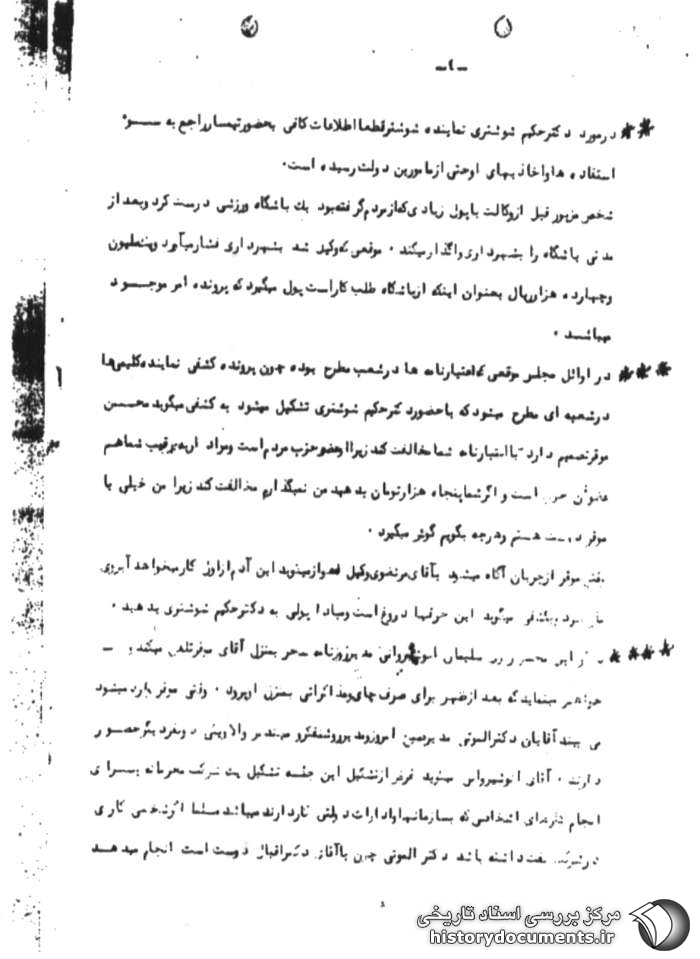 -٤-
** درمورد دکترحکیم شوشتری نماینده شوشترقطعا اطلاعات کافی بحضورتیمسارراجع به ســـوء
استفاده هاواخاذیهای اوحتی ازمامورین دولت رسیده است.
شخص مزبور قبل ازوکالت باپول زیادی که ازمردم گرفته بود یك باشگاه ورزشی درست کرد وبعد از
مدتی باشگاه را بشهرداری واگذارمیکند. موقعی که وکیل شد بشهرداری فشارمیآورد
وچهارده هزارریال بعنوان اینکه ازباشگاه طلب کاراست پول میگیرد که پرونده امر موجـــود
میباشـد.
*** در اوائل مجلس موقعی که اعتبارنامه ها درشعب مطرح بوده چون پرونده کشفی نماینده کلیمی ها
درشعبه ای مطرح میشود که باحضور دکترحکیم شوشتری تشکیل میشود به کشفی میگوید محســن
موقرتصمیم دارد بااعتبارنامه شما مخالفت کند زیرا عضو حزب مردم است ومراد اریه رقیب شماهم
است و اگرشما پنجاه هزارتومان بدهید من نمیگذارم مخالفت کند زیرا من خیلی با
موقر دوست هستم وهرچه بگویم گوش میگیرد.
موقر ازجریان آگاه میشود بآقای مرتضوی وکیل اهواز میگوید این آدم ازاول کار میخواهد آبروی
میگوید این حرفها دروغ است ومبادا پولی به دکترحکیم شوشتری بدهید.
**** سلیمان انوشیروانی مدیرروزنامه سحر بمنزل آقای موقرتلفن میکند و ــ
مینماید که بعد ازظهر برای صرف چای ومذاکراتی بمنزل اوبرود. وقتی موقر وارد میشود
می بیند آقایان دکترالموتی مدیر امروز ومدیر روشنفکر و مهندس والا وینی دونفر دیگرحضــور
دارند. آقای انوشیروانی میگوید غرض ازتشکیل این جلسه تشکیل یك شرکت محرمانه بـــرای
انجام کارهای اشخاصی که بسازمانها وادارات دولتی کار دارند میباشد مسلما اگرشخصی کاری
درشرکت نفت داشته باشد دکتر الموتی چون باآقای دکتراقبال دوست است انجام میدهـد
مرکز بررسی اسناد تاریخی
historydocuments.ir